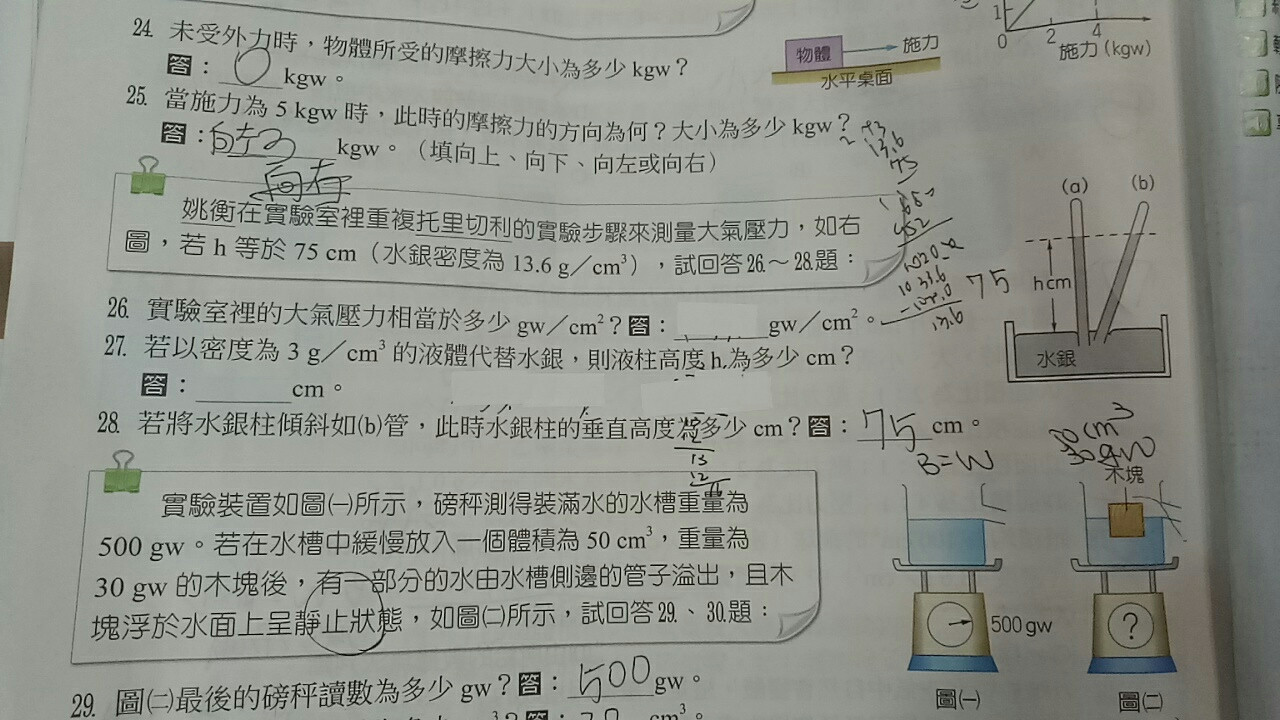 24. 未受外力時，物體所受的摩擦力大小為多少 kgw？
答：0 kgw。
物體
施力
水平桌面
1
0 2 4
施力 (kgw)
25. 當施力為 5 kgw 時，此時的摩擦力的方向為何？大小為多少 kgw？
答：向左 kgw。（填向上、向下、向左或向右）
向右
13.6
75
姚衡在實驗室裡重複托里切利的實驗步驟來測量大氣壓力，如右
圖，若 h 等於 75 cm（水銀密度為 13.6 g／cm³），試回答26.～28.題：
75
(a) (b)
h cm
水銀
26. 實驗室裡的大氣壓力相當於多少 gw／cm²？答：gw／cm²。
27. 若以密度為 3 g／cm³ 的液體代替水銀，則液柱高度 h 為多少 cm？
答：______ cm。
28. 若將水銀柱傾斜如(b)管，此時水銀柱的垂直高度為多少 cm？答：75 cm。
B=W
30gw
木塊
實驗裝置如圖㈠所示，磅秤測得裝滿水的水槽重量為
500 gw。若在水槽中緩慢放入一個體積為 50 cm³，重量為
30 gw 的木塊後，有一部分的水由水槽側邊的管子溢出，且木
塊浮於水面上呈靜止狀態，如圖㈡所示，試回答29.、30.題：
500 gw
?
圖㈠
圖㈡
29. 圖㈡最後的磅秤讀數為多少 gw？答：500 gw。